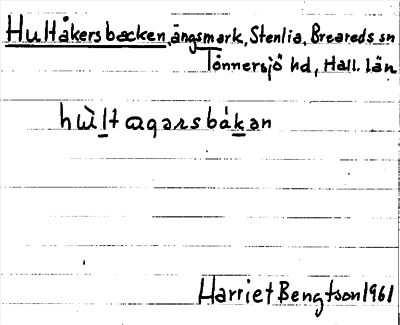 Hultåkersbacken, ängsmark, Stenlia, Breareds sn
Tönnersjö hd, Hall. län
hùltagarsbákan
Harriet Bengtson 1961